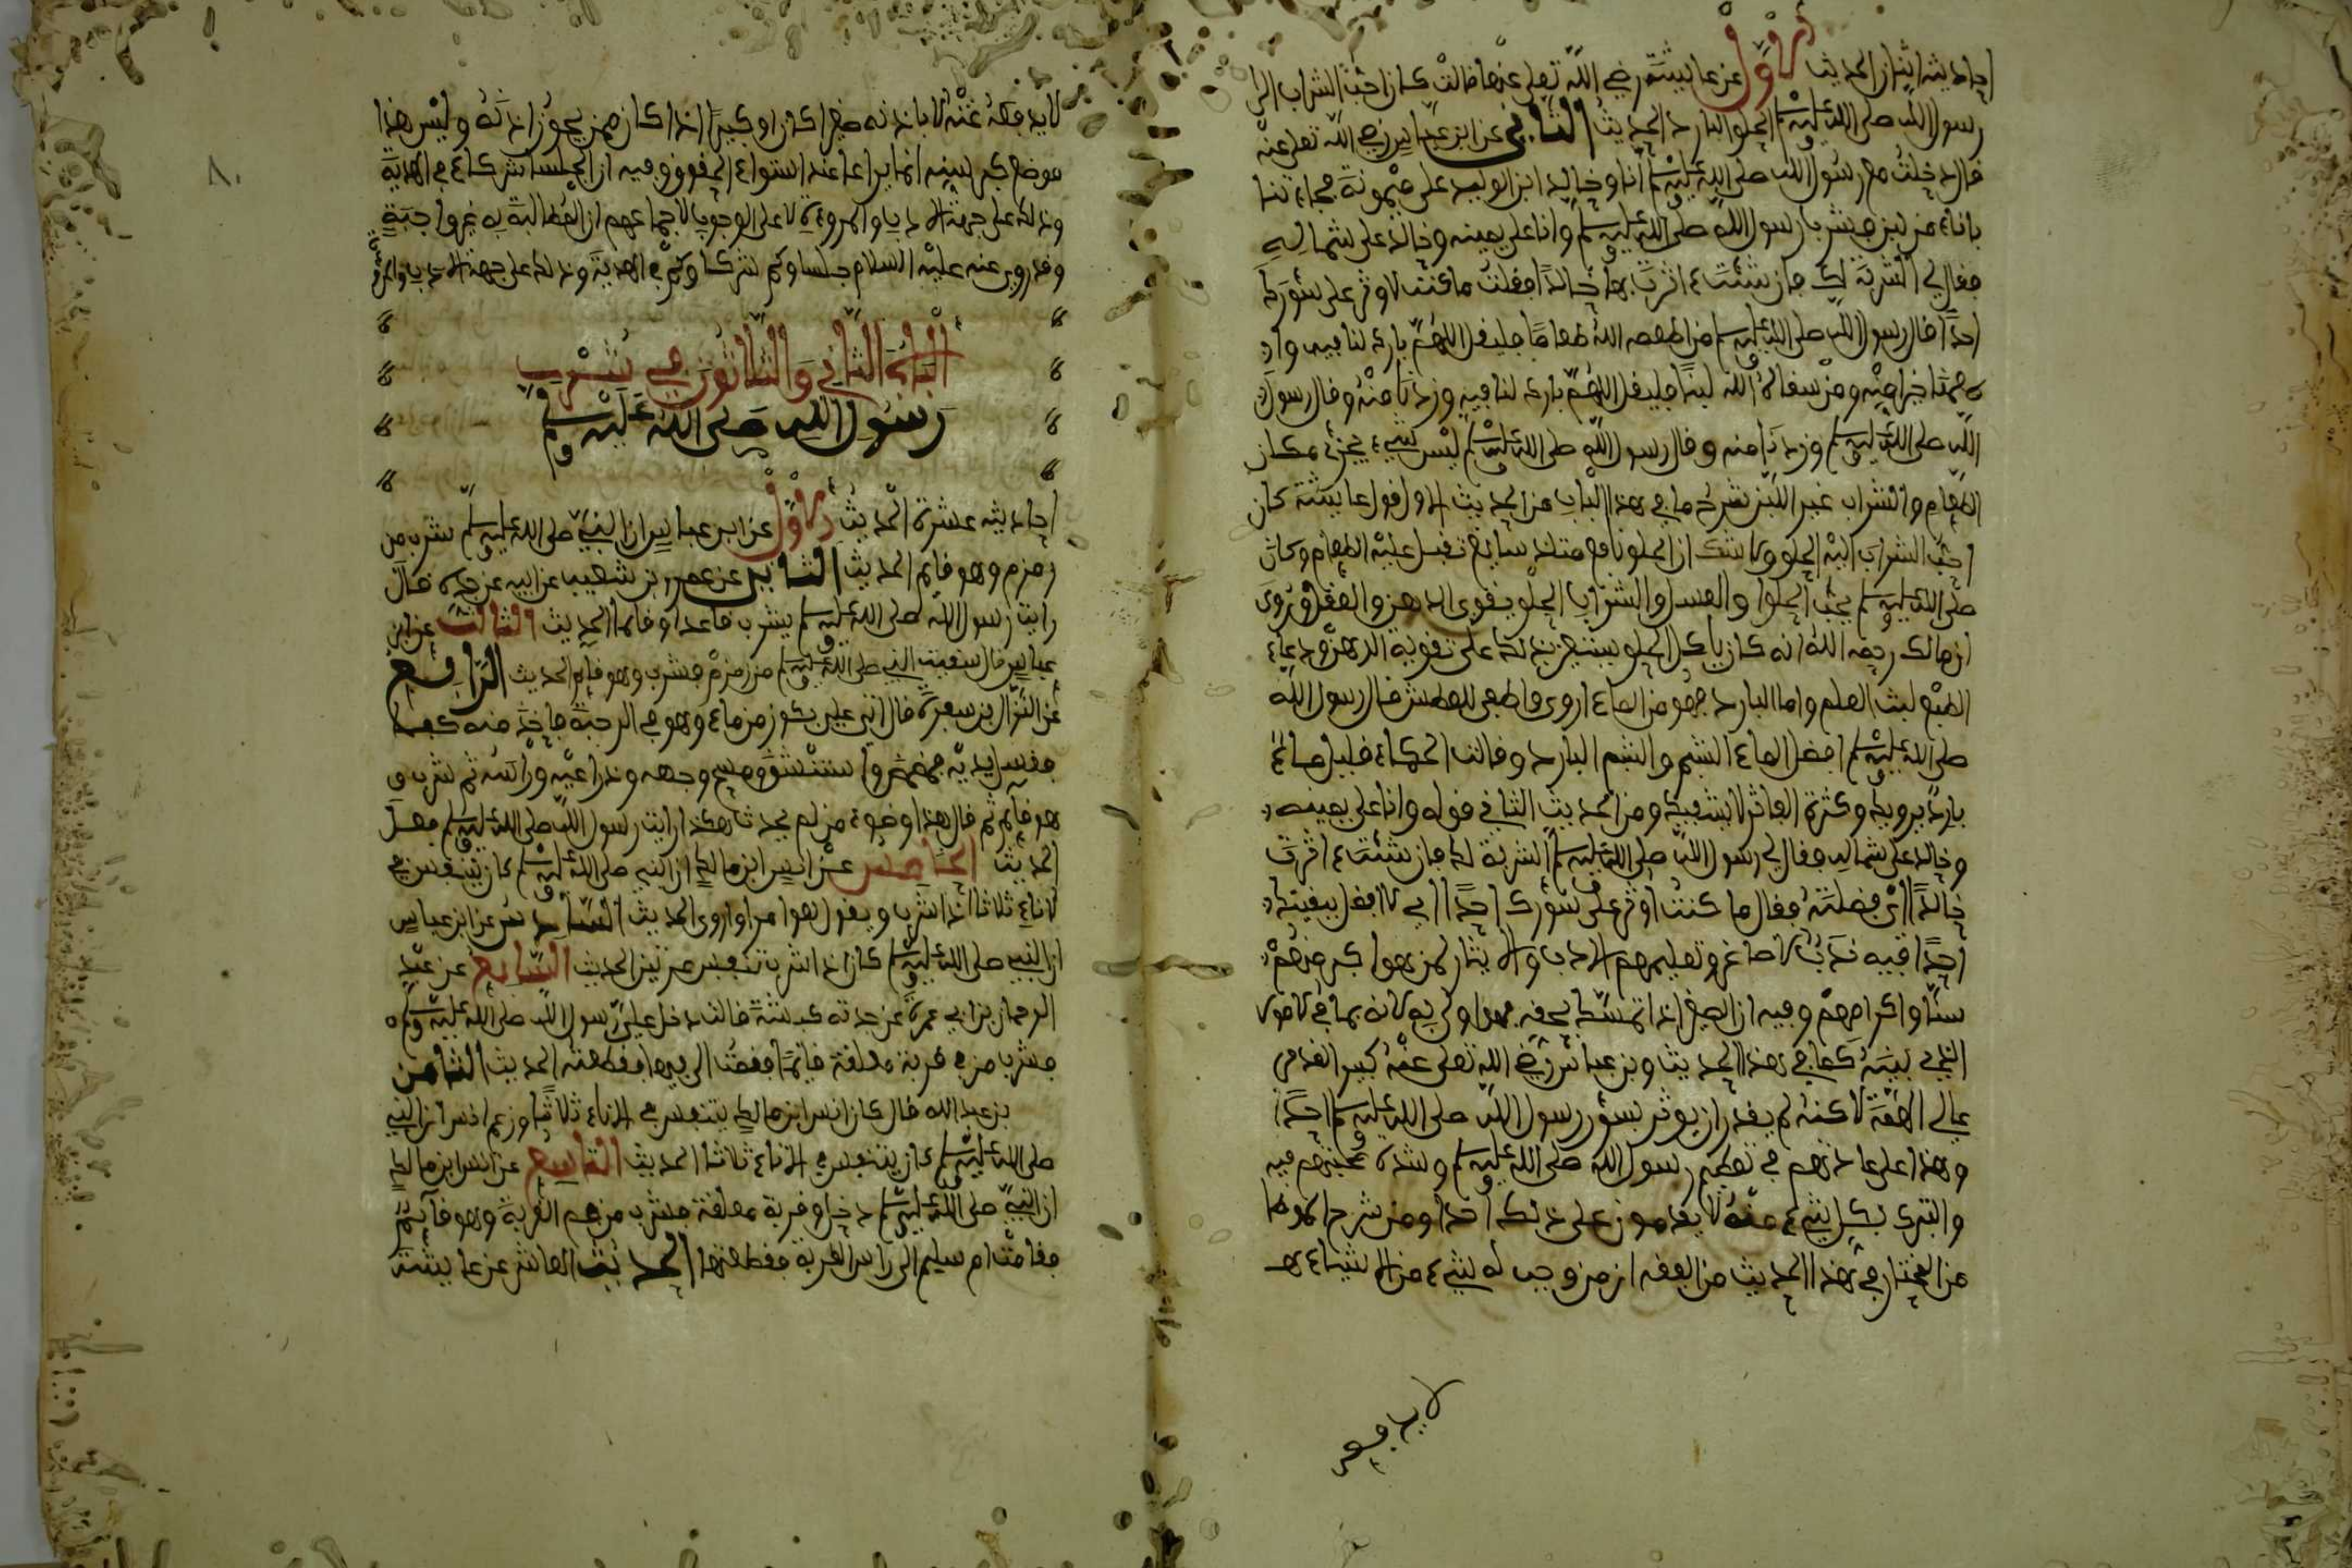 احاديثه اثنان الحديث الاول عن عايشة رضي الله تعلى عنها قالت كان احب الشراب الى
رسول الله صلى الله عليه وسلم الحلو البارد الحديث الثاني عن ابن عباس رضي الله تعلى عنه
قال دخلت مع رسول الله صلى الله عليه وسلم انا وخالد ابن الوليد على ميمونة فجاءتنا
باناء من لبن فشرب رسول الله صلى الله عليه وسلم وانا على يمينه وخالد على شماله
فقال لي الشربة لك فان شئت ءاثرت بها خالدا فقلت ما كنت لاوثر على سؤرك
احدا قال رسول الله صلى الله عليه وسلم من اطعمه الله طعاما فليقل اللهم بارك لنا فيه واد
طعمنا خيرا منه ومن سقاه الله لبنا فليقل اللهم بارك لنا فيه وزدنا منه وقال رسول
الله صلى الله عليه وسلم وزدنا منه وقال رسول الله صلى الله عليه وسلم ليس شيء يجزئ مكان
الطعام والشراب غير اللبن شرح ما في هذا الباب من الحديث الاول قول عايشة كان
احب الشراب اليه الحلو ولا شك ان الحلو نافع متلذ سايغ تقبل عليه الطعام وكان
صلى الله عليه وسلم يحب الحلوا والعسل والشراب الحلو يقوي الدهن والعقل وروي
ان مالك رحمه الله انه كان ياكل الحلو يستعين بذلك على تقوية الدهن ودعاء
الطبع لبث العلم واما البارد فهو من الماء اروى واطفى للعطش قال رسول الله
صلى الله عليه وسلم افضل الماء الشبم والشبم البارد وقالت الحكماء قليل ماء
بارد يرويك وكثرة الفاتر لا يشفيك ومن الحديث الثاني قوله وانا على يمينه
وخالد على شماله فقال لي رسول الله صلى الله عليه وسلم الشربة لك فان شئت ءاثرت
خالدا اي فضلته فقال ما كنت اوثر على سؤرك احدا اي لا افعل ببقيتك
احدا فيه ندب الاصاغر وتعليمهم الادب والايثار لمن هو اكبر منهم
سنا واكرامهم وفيه ان الصغير اذا تمسك بحقه فهو اولى به لانه بما في لاخرى
الذي بينه كما في هذا الحديث وبن عباس رضي الله تعلى عنه كبير القدر في
عالي الهمة لاكنه لم يقدر ان يوثر بسؤر رسول الله صلى الله عليه وسلم احدا
وهذا على عادتهم في تعظيم رسول الله صلى الله عليه وسلم وشدة محبتهم فيه
والتبرك بكل شيء منه لا يقدمون على ذلك احدا ومن شرح الموطا
من المختار في هذا الحديث من الفقه ان من وجب له شيء من الاشياء
لا يدفع
لا يدفع عنه الا باذنه صغيرا كان او كبيرا اذا كان ممن يجوز اذنه وليس هذا
موضع كبر لسنه انما يراعا عند استواء الحقوق وفيه ان الجلسا شركاء في الهدية
وذلك على جهة الادب والمروءة لا على الوجوب لاجماعهم ان المطالبة به غير واجبة
وقد روي عنه عليه السلام جلساوكم شركاوكم في الهدية وذلك على جهة الادب والمروءة
الباب الثاني والثلاثون في شرب
رسول الله صلى الله عليه وسلم
احاديثه عشرة الحديث الاول عن ابن عباس ان النبي صلى الله عليه وسلم شرب من
زمزم وهو قايم الحديث الثاني عن عمرو بن شعيب عن ابيه عن جده قال
رايت رسول الله صلى الله عليه وسلم يشرب قاعدا وقايما الحديث الثالث عن ابن
عباس قال سقيت النبي صلى الله عليه وسلم من زمزم فشرب وهو قايم الحديث الرابع
عن النزال بن سبرة قال اتي علي بكوز من ماء وهو في الرحبة فاخذ منه كفا
فغسل يديه فمضمض واستنشق ومسح وجهه وذراعيه وراسه ثم شرب و
هو قايم ثم قال هذا وضوء من لم يحدث هكذا رايت رسول الله صلى الله عليه وسلم فعل
الحديث الخامس عن انس ابن مالك ان النبي صلى الله عليه وسلم كان يتنفس في
لاناء ثلاثا اذا شرب ويقول هو امرا واروى الحديث السادس عن ابن عباس
ان النبي صلى الله عليه وسلم كان اذا شرب تنفس مرتين الحديث السابع عن عبد
الرحمان بن ابي عمرة عن جدته كبشة قالت دخل علي رسول الله صلى الله عليه وسلم
فشرب من في قربة معلقة قايما فقمت الى فيها فقطعته الحديث الثامن
بن عبد الله قال كان انس ابن مالك يتنفس في الاناء ثلاثا وزعم انس ان النبي
صلى الله عليه وسلم كان يتنفس في الاناء ثلاثا الحديث التاسع عن انس ابن مالك
ان النبي صلى الله عليه وسلم دخل وقربة معلقة فشرب من فم القربة وهو قايم
فقامت ام سليم الى راس القربة فقطعتها الحديث العاشر عن عايشة